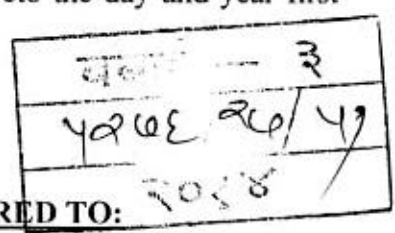 the day and year first
— ३
५२७६ २७/५१
२०१४
RED TO: